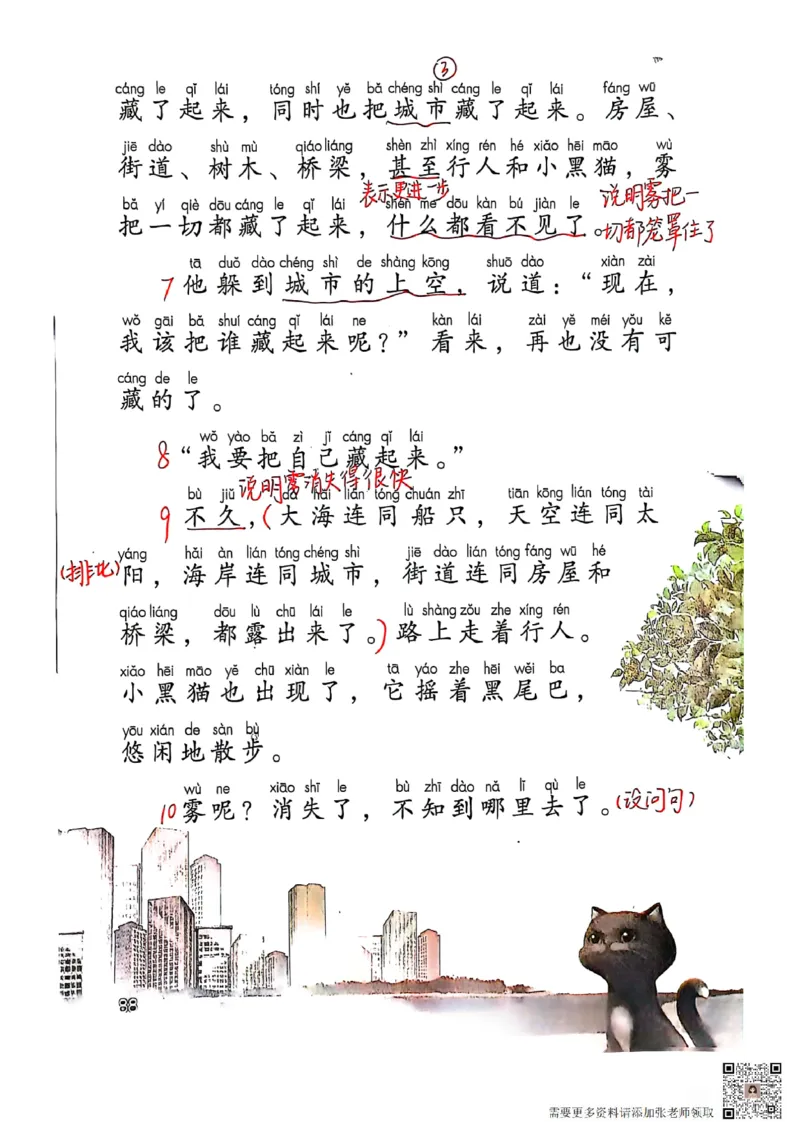 ③
cáng le qǐ lái tóng shí yě bǎ chéng shì cáng le qǐ lái fáng wū
藏了起来，同时也把城市藏了起来。房屋、
jiē dào shù mù qiáo liáng shèn zhì xíng rén hé xiǎo hēi māo wù
街道、树木、桥梁，甚至行人和小黑猫，雾
表示更进一步
说明雾把一切都笼罩住了
bǎ yí qiè dōu cáng le qǐ lái shén me dōu kàn bú jiàn le
把一切都藏了起来，什么都看不见了。
tā duǒ dào chéng shì de shàng kōng shuō dào xiàn zài
7他躲到城市的上空，说道：“现在，
wǒ gāi bǎ shuí cáng qǐ lái ne kàn lái zài yě méi yǒu kě
我该把谁藏起来呢？”看来，再也没有可
cáng de le
藏的了。
wǒ yào bǎ zì jǐ cáng qǐ lái
8“我要把自己藏起来。”
说明雾消失得很快
bù jiǔ dà hǎi lián tóng chuán zhī tiān kōng lián tóng tài
9不久，(大海连同船只，天空连同太
yáng hǎi àn lián tóng chéng shì jiē dào lián tóng fáng wū hé
(排比)阳，海岸连同城市，街道连同房屋和
qiáo liáng dōu lù chū lái le lù shàng zǒu zhe xíng rén
桥梁，都露出来了。)路上走着行人。
xiǎo hēi māo yě chū xiàn le tā yáo zhe hēi wěi ba
小黑猫也出现了，它摇着黑尾巴，
yōu xián de sàn bù
悠闲地散步。
wù ne xiāo shī le bù zhī dào nǎ lǐ qù le
10雾呢？消失了，不知到哪里去了。(设问句)
88
需要更多资料请添加张老师领取